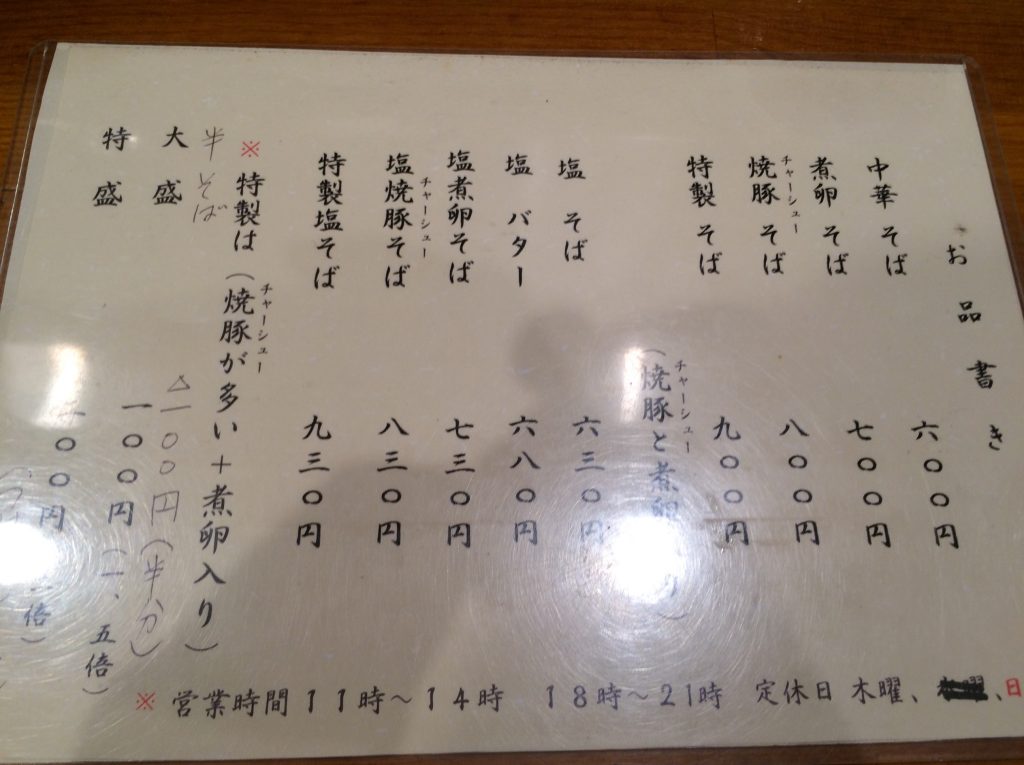 お品書き
中華そば 六〇〇円
煮卵そば 七〇〇円
焼豚そば 八〇〇円
チャーシュー
特製そば 九〇〇円
(焼豚と煮卵 り)
チャーシュー
塩そば 六三〇円
塩バター 六八〇円
塩煮卵そば 七三〇円
塩焼豚そば 八三〇円
チャーシュー
特製塩そば 九三〇円
※特製は(焼豚が多い+煮卵入り)
チャーシュー
半そば △一〇〇円(半分)
大盛 一〇〇円(一、五倍)
特盛 〇〇円 倍)
※営業時間11時~14時 18時~21時 定休日 木曜、 、日